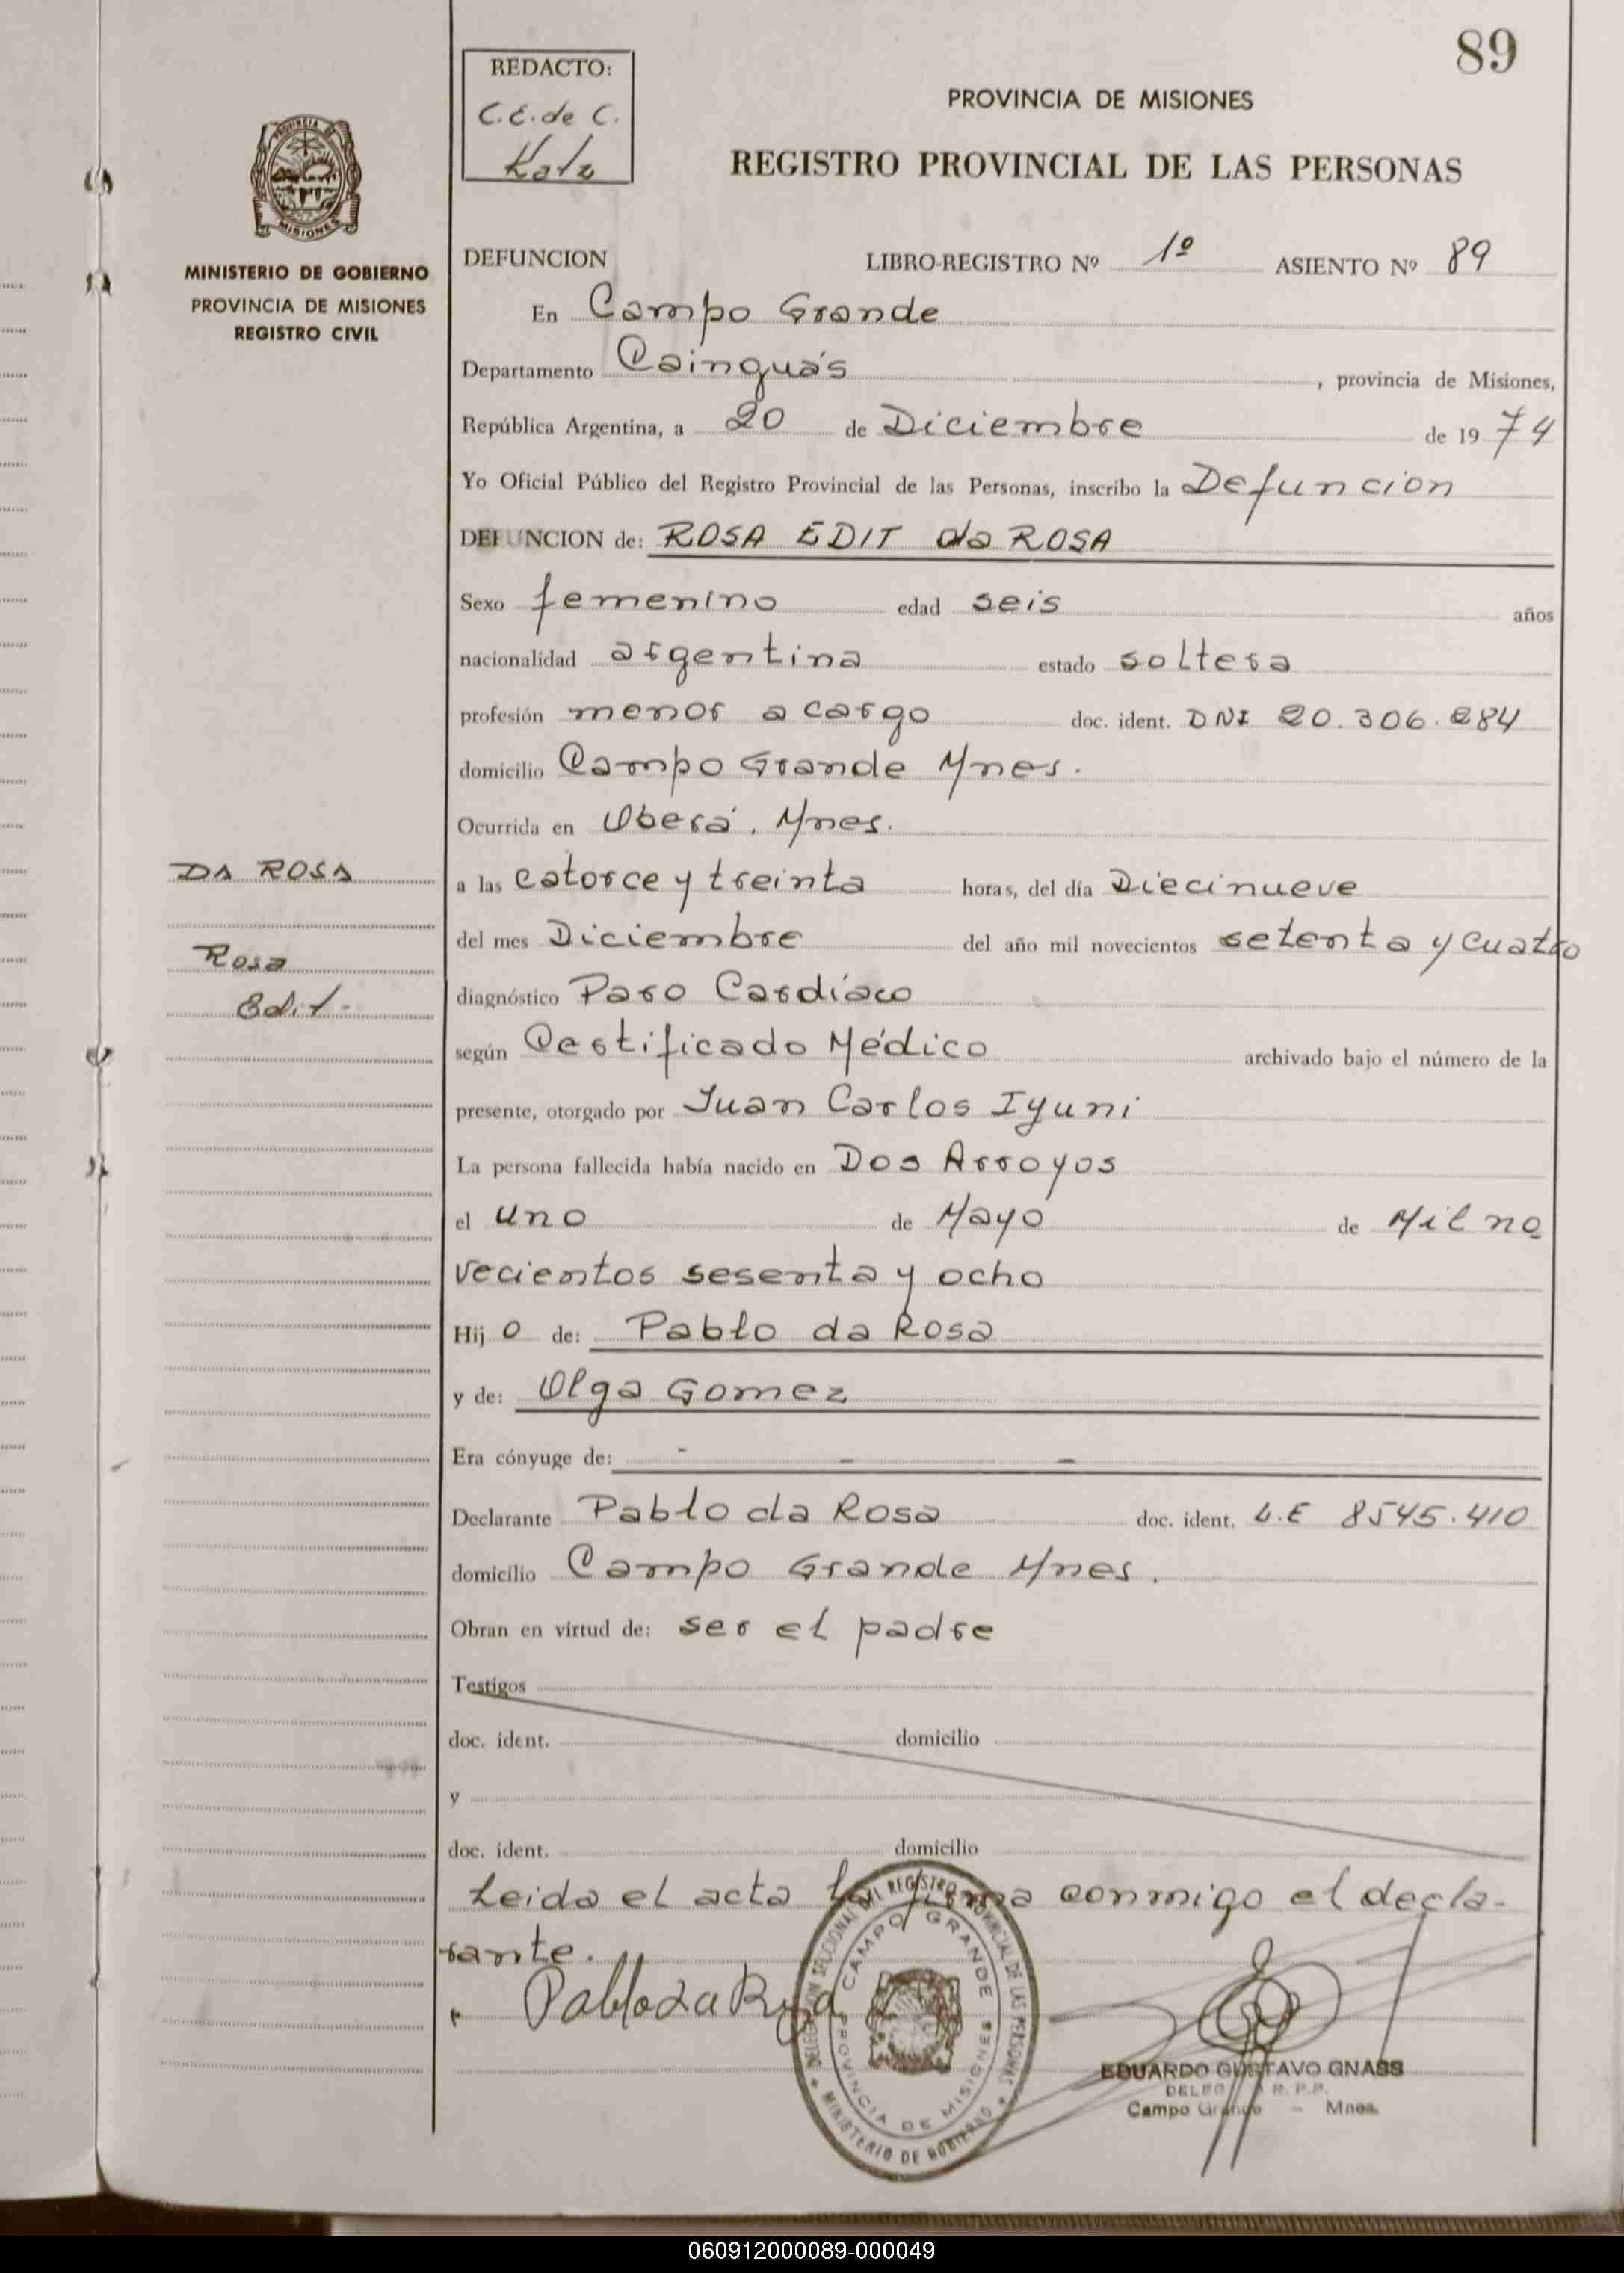 89
REDACTO:
C.E. de C.
Katz
PROVINCIA DE MISIONES
REGISTRO PROVINCIAL DE LAS PERSONAS
PROVINCIA DE
MISIONES
MINISTERIO DE GOBIERNO
PROVINCIA DE MISIONES
REGISTRO CIVIL
DEFUNCION LIBRO-REGISTRO Nº 1º ASIENTO Nº 89
En Campo Grande
Departamento Cainguás, provincia de Misiones,
República Argentina, a 20 de Diciembre de 1974
Yo Oficial Público del Registro Provincial de las Personas, inscribo la Defuncion
DEFUNCION de: ROSA EDIT da ROSA
Sexo femenino edad seis años
nacionalidad argentina estado soltera
profesión menor a cargo doc. ident. DNI 20.306.284
domicilio Campo Grande Mnes.
Ocurrida en Oberá, Mnes.
DA ROSA
Rosa
Edit-
a las catorce y treinta horas, del día Diecinueve
del mes Diciembre del año mil novecientos setenta y cuatro
diagnóstico Paro Cardíaco
según Certificado Médico archivado bajo el número de la
presente, otorgado por Juan Carlos Iyuni
La persona fallecida había nacido en Dos Arroyos
el uno de Mayo de Mil no
vecientos sesenta y ocho
Hijo de: Pablo da Rosa
y de: Olga Gomez
Era cónyuge de: - - -
Declarante Pablo da Rosa doc. ident. L.E 8545.410
domicilio Campo Grande Mnes.
Obran en virtud de: ser el padre
Testigos
doc. ident. domicilio
y
doc. ident. domicilio
Leida el acta la firma conmigo el decla-
rante.
Pablo da Rosa
DELEGACION SECCIONAL DEL REGISTRO PROVINCIAL DE LAS PERSONAS
MINISTERIO DE GOBIERNO
CAMPO GRANDE
PROVINCIA DE MISIONES
EDUARDO GUSTAVO GNASS
R. P. P.
Campo Grande - Mnes.
060912000089-000049